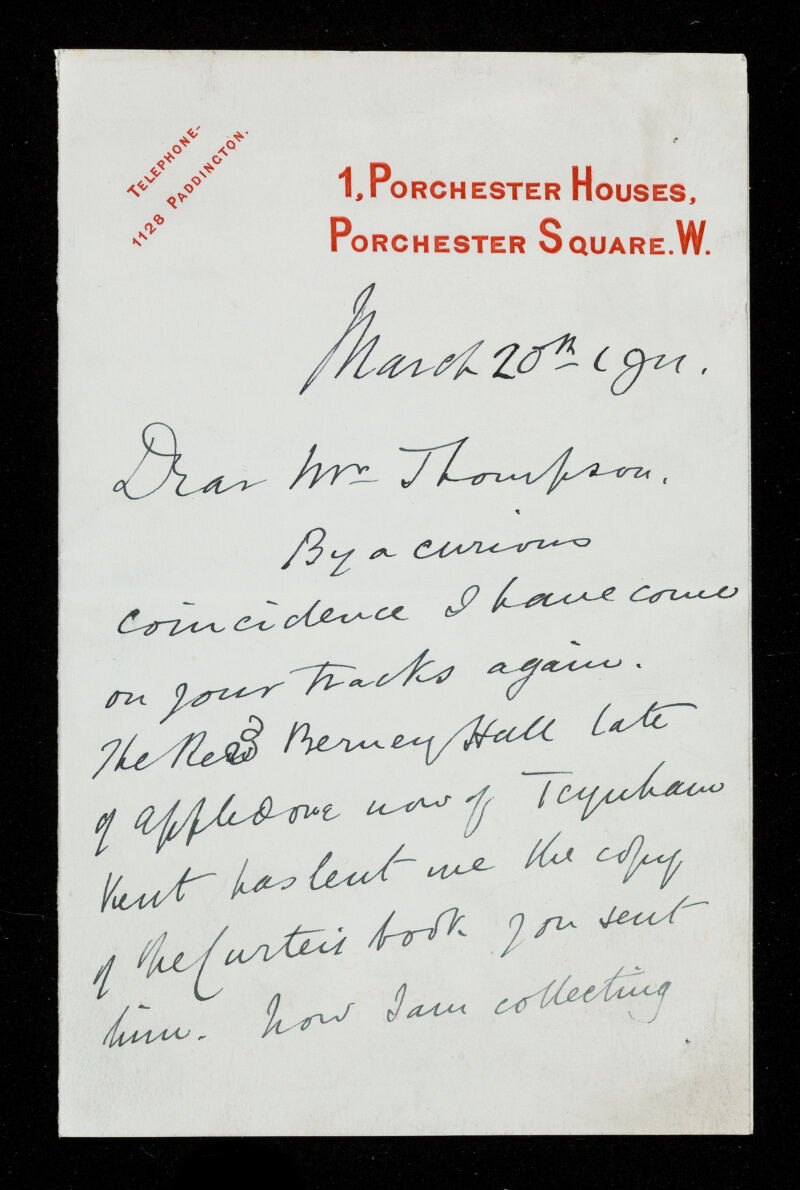 TELEPHONE-
1128 PADDINGTON.
1, PORCHESTER HOUSES,
PORCHESTER SQUARE. W.
March 20th 1911.
Dear Mr Thompson.
By a curious
coincidence I have come
on your tracks again.
The Revd Berney Hall late
of Appledore now of Teynham
Kent has lent me the copy
of the Curteis book you sent
him. Now I am collecting